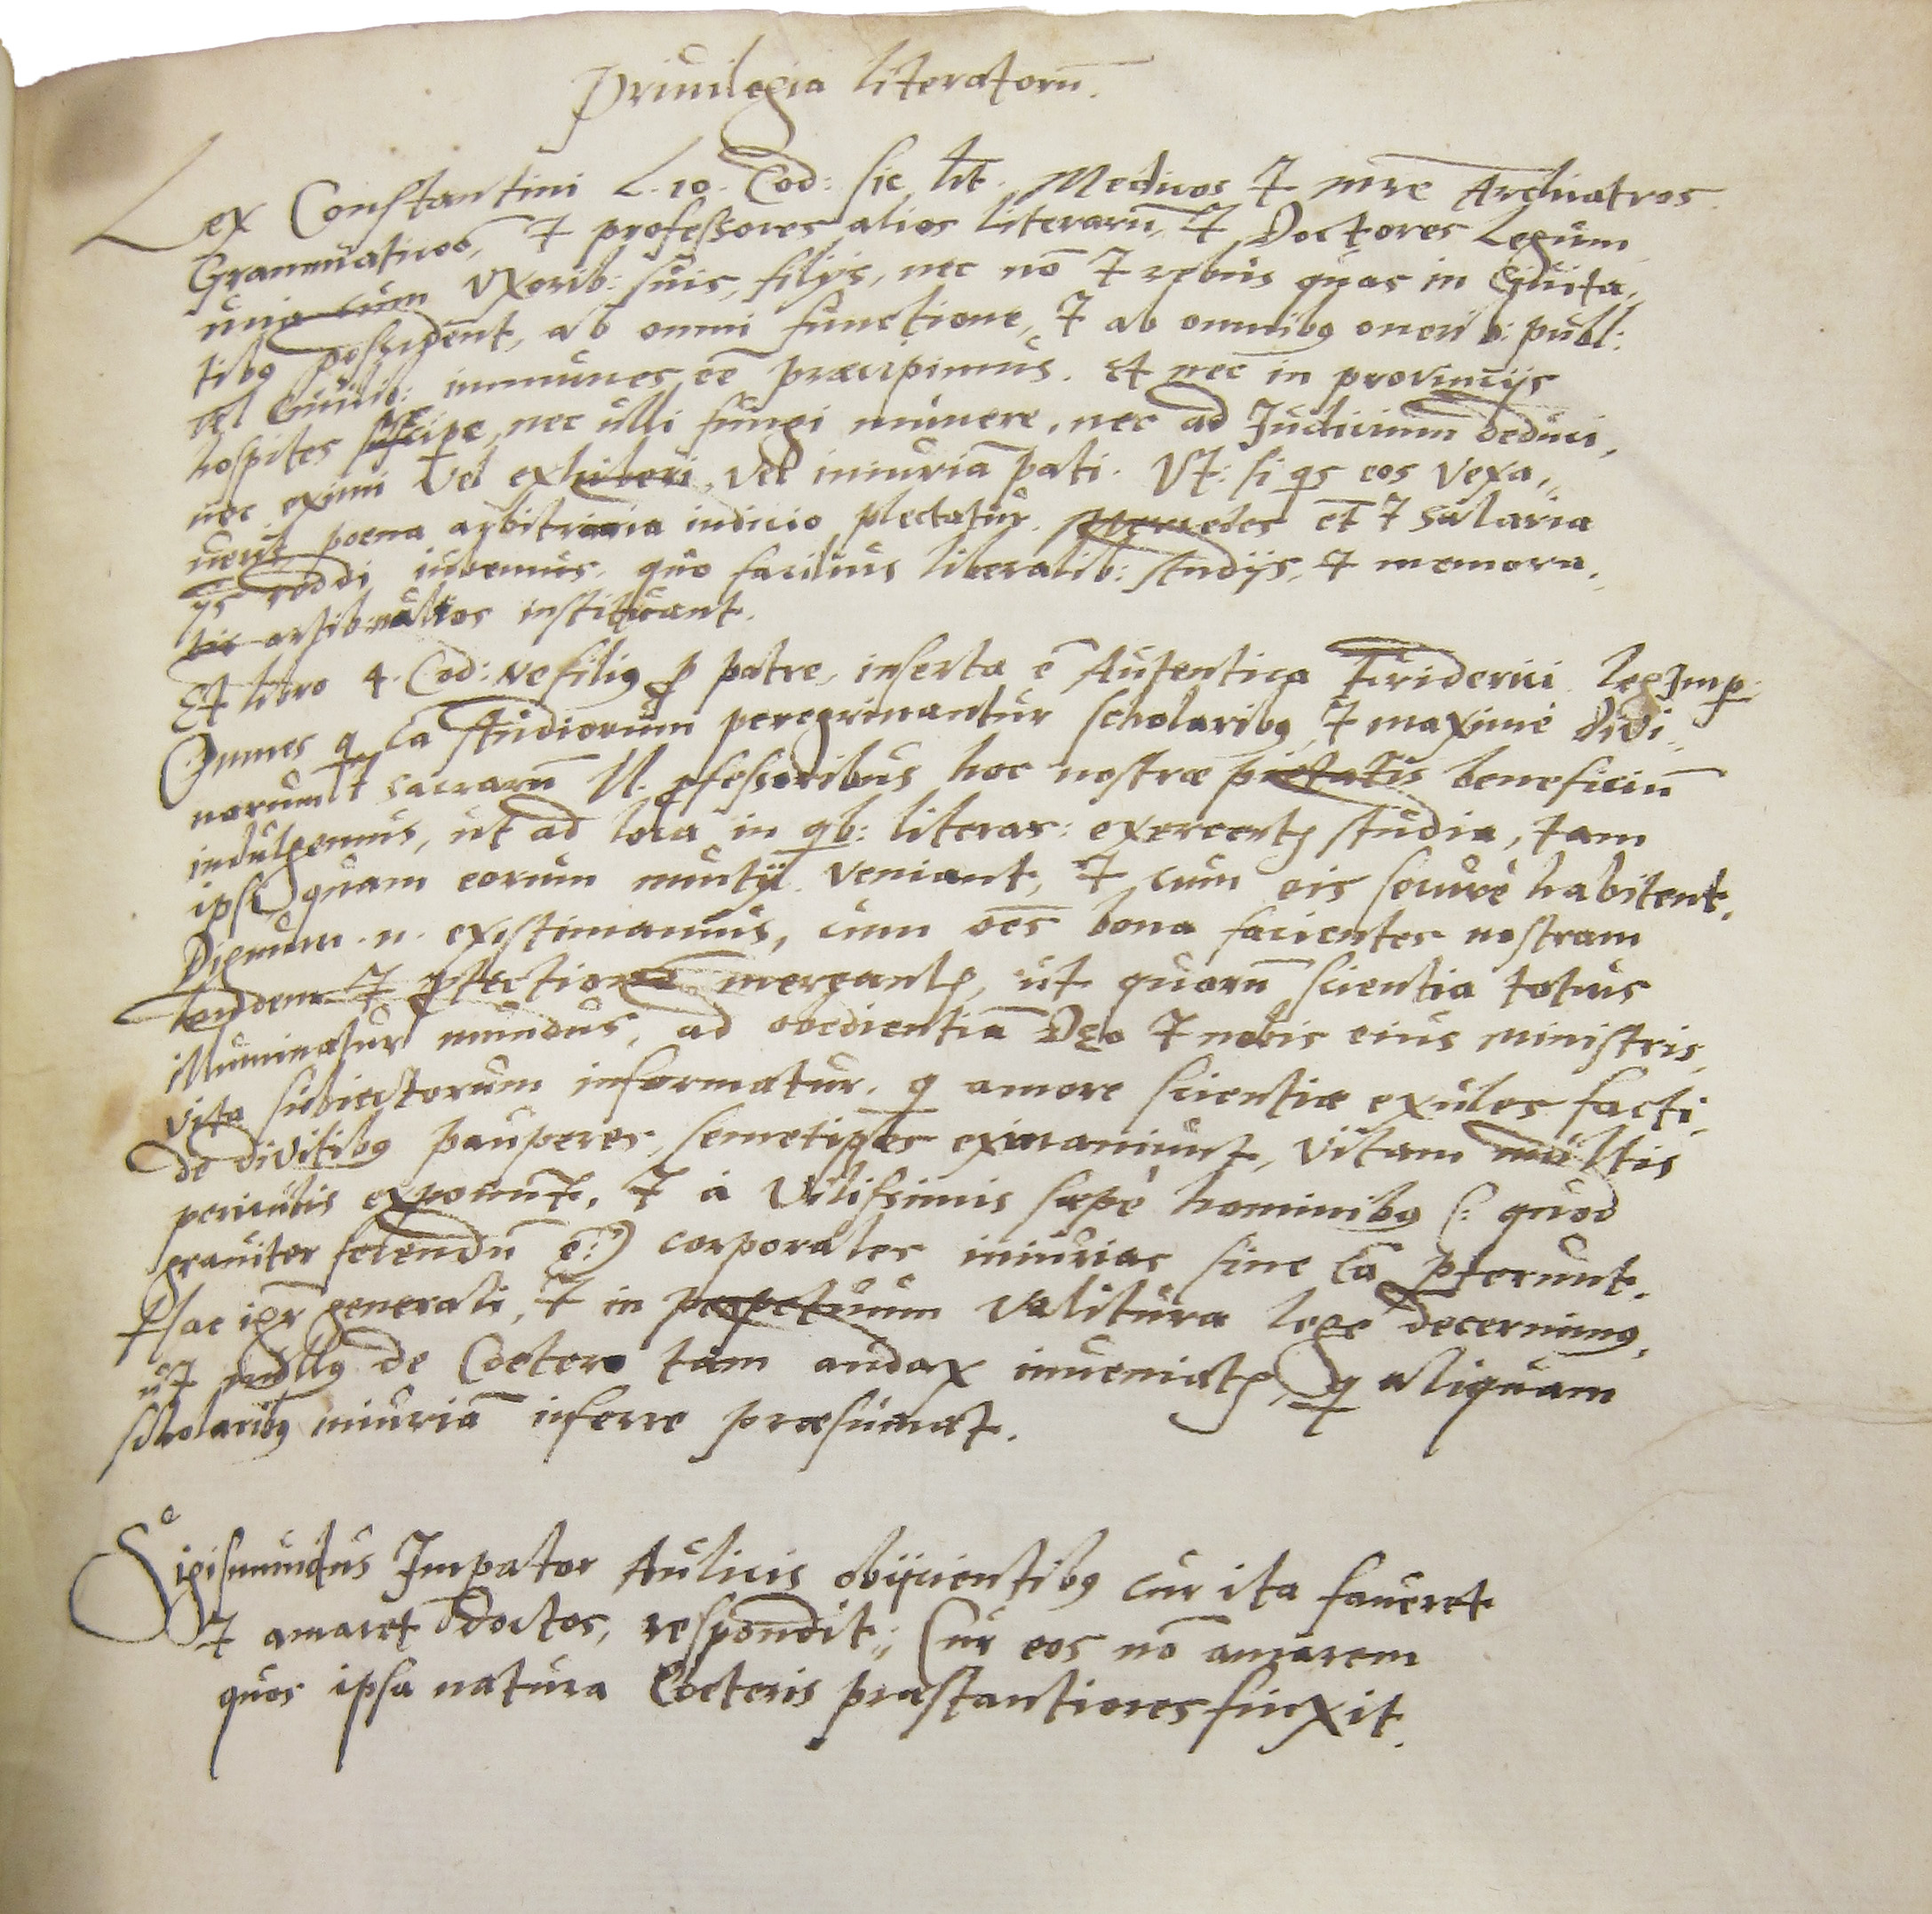 Priuilegia literatorū.
Lex Constantini L. 10. Cod: sic hēt. Medicos & mꝛe Archiatros
Grammaticos, & professores alios literarū, & Doctores Legum
una cum Vxorib: suis, filijs, nec nō & rebus quas in Ciuita„
tibꝰ possident, ab omni functione, & ab omnibꝰ onerib: publ:
vel Ciuilib: immunes eē præcipimus. Et nec in provincijs
hospites suscipe, nec ulli fungi munere, nec ad Judicium deduci,
nec eximi vel exhiberi, vel iniuriā pati. Vt: si qs eos vexa„
uerit poena arbitraria iudicio plectatur. Mercedes et & salaria
ijs reddi iubemus, quo facilius liberalib: studijs, & memora„
tis artib: multos instituant.
Et libro 4. Cod: Ne filiꝰ ꝓ patre, inserta ē Autentica Friderici Leg Imp:
Omnes q cā studiorum peregrinantur scholaribꝰ, & maximè divi„
norum & sacrarū ll. ꝓfessoribus hoc nostræ pietatis beneficiū
indulgemus, ut ad loca in qb: literar: exercentꝛ studia, tam
ipsi quam eorum nuntij veniant, & cum eis securè habitent.
Dignum .n. existimamus, cum oēs bona facientes nostram
laudem & ꝓtectionē mereantꝛ, ut quorū scientia totus
illuminatur mundus, ad obedientiā Deo & nobis eius ministris,
vita subiectorum informatur. q amore scientiæ exules facti,
de divitibꝰ pauperes, semetipsos exinaniunt, Vitam multis
periculis exponunt, & à Vilissimis sæpè hominibꝰ (: quod
grauiter ferendū ē:) corporales iniurias sine cā pferunt.
Hac igr generali, & in perpetuum valitura lege decernimꝰ,
ut nullꝰ de Coetero tam audax inueniatꝛ, q aliquam
scholaribꝰ iniuriā inferre præsumat.
Sigismundus Impator Aulicis obijcientibꝰ cur ita faueret
& amaret Doctos, respondit„ Cur eos nō amarem
quos ipsa natura Coeteris præstantiores finxit.